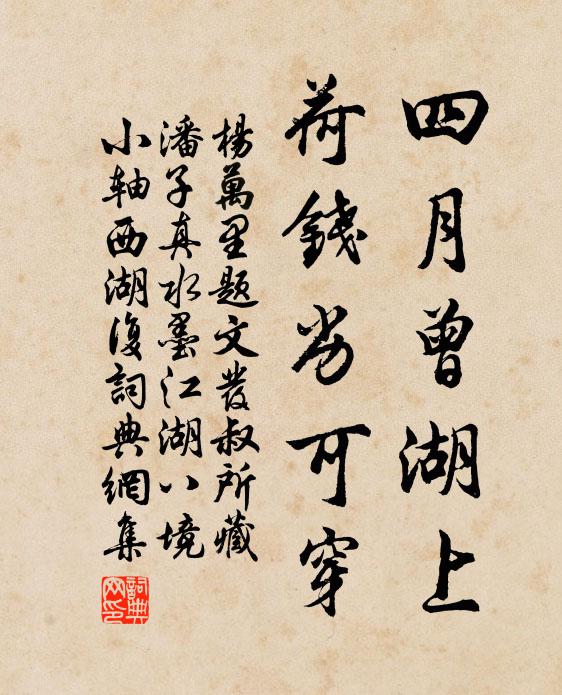 四月曾湖上
荷錢劣可穿
楊萬里題文發叔所藏
潘子真水墨江湖八境
小軸西湖復詞典網集
詞典网印